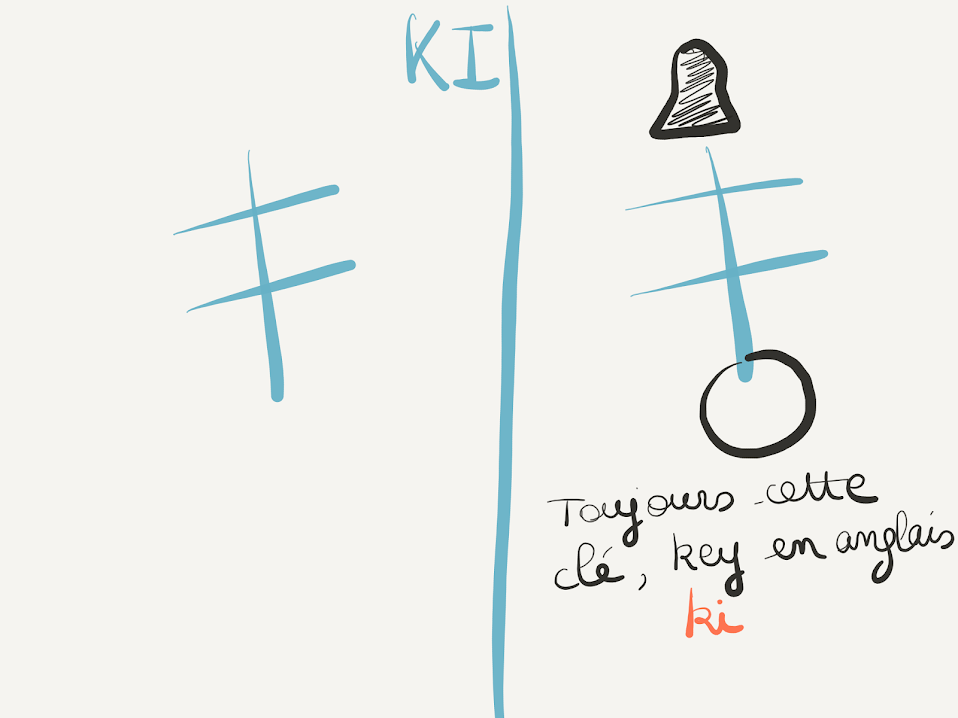 KI
キ
キ
Toujours cette
clé, key en anglais
ki